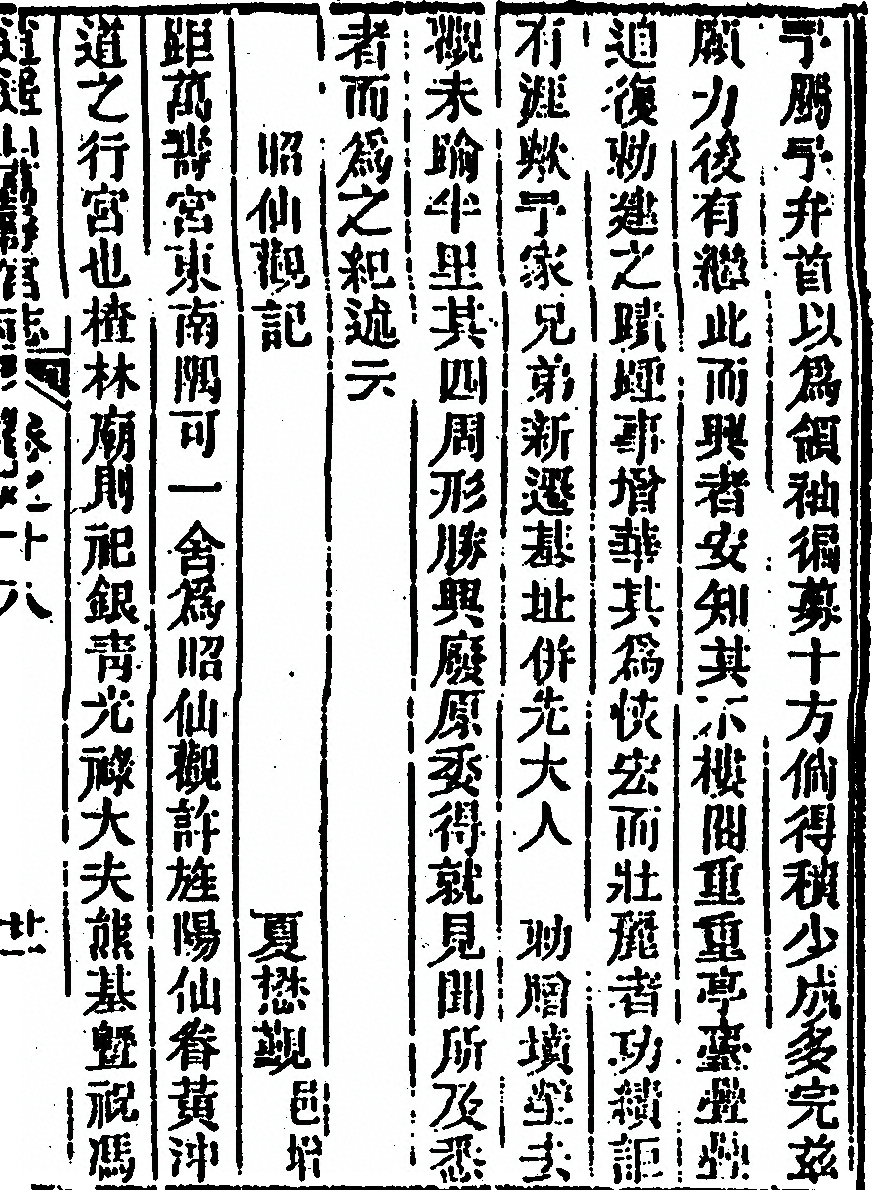 予鵬予弁首以爲領袖徧募十方倘得積少成多完茲
願力後有繼此而興者安知其不樓閣重重亭臺疊疊
追復勅建之蹟踵事增華其爲恢宏而壯麗者功績詎
有涯歟予家兄弟新遷基址併先大人　勅贈墳塋去
觀未踰半里其四周形勝興廢原委得就見聞所及悉
者而爲之紀述云
昭仙觀記　夏懋覲　邑增
距萬壽宮東南隅可一舍爲昭仙觀許旌陽仙眷黃沖
道之行宮也橙林廟則祀銀靑光祿大夫熊基曁祝馮
逍遙山萬壽宮志　卷之十八　廿一